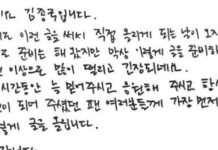 김종국입니다.
이런 글을 써서 직접 올리게 되는 날이 오
준비는 해 갔지만 막상 이렇게 글을 준비하
이상으로 많이 떨리고 긴장되네요.
시간동안 늘 믿어주시고 응원해 주고 항상
이 되어 주셨던 팬 여러분들께 가장 먼저
글을 올립니다.